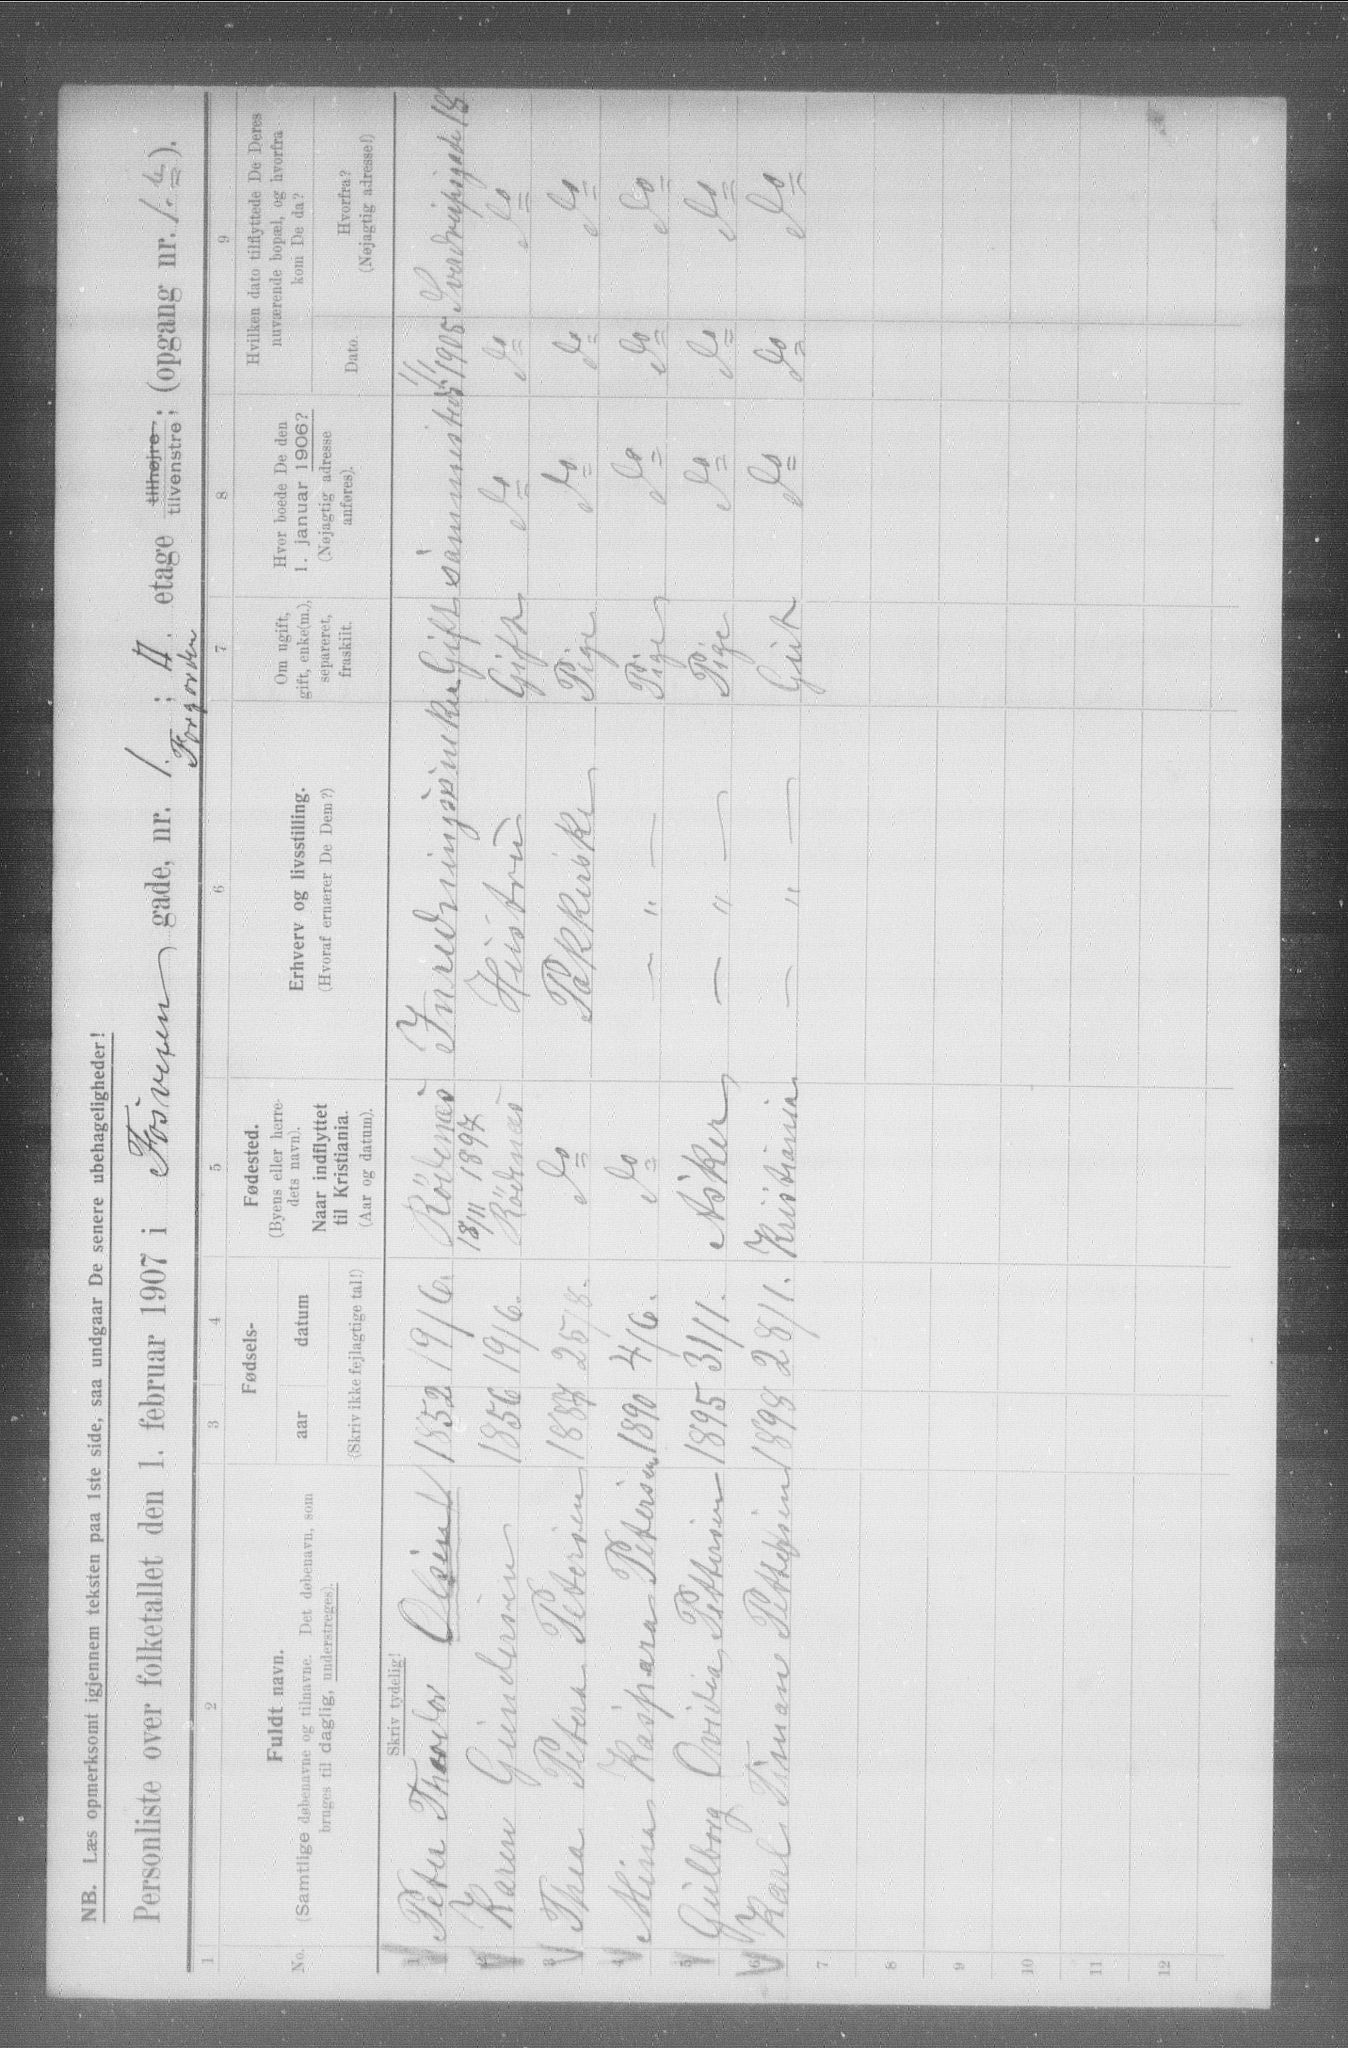 NB. Læs opmerksomt igjennem teksten paa 1ste side, saa undgaar De senere ubehageligheder!
Personliste over folketallet den 1. februar 1907 i Fosvejen gade, nr. 1. ; II. etage tilhøjre tilvenstre; (opgang nr. 1.).
Forgorden
1 2 3 4 5 6 7 8 9
No. Fuldt navn. (Samtlige døbenavne og tilnavne. Det døbenavn, som bruges til daglig, understreges).
Fødsels- aar datum (Skriv ikke fejlagtige tal!)
Fødested. (Byens eller herredets navn). Naar indflyttet til Kristiania. (Aar og datum).
Erhverv og livsstilling. (Hvoraf ernærer De Dem?)
Om ugift, gift, enke(m.), separeret, fraskilt.
Hvor boede De den 1. januar 1906? (Nøjagtig adresse anføres).
Hvilken dato tilflyttede De Deres nuværende bopæl, og hvorfra kom De da?
Dato. Hvorfra? (Nøjagtig adresse!)
Skriv tydelig!
1 Peter Theodor Olsen 1852 19/6. Rödenæs 1897 Gift sammested 1905
2 Karen Gundersen 1856 19/6. Rödenæs Hustru Gift do do do
3 Thea Petera Petersen 1887 25/8. do Pakkerske Pige do do do
4 Mina Kaspara Petersen 1890 4/6. do — " — Pige do do do
5 Gulborg Ovidia Pettersen 1895 31/1. Asker — " — Pige do do do
6 Karl Timane Pettersen 1898 28/1. Kristiania — " — Gut do do do
7
8
9
10
11
12